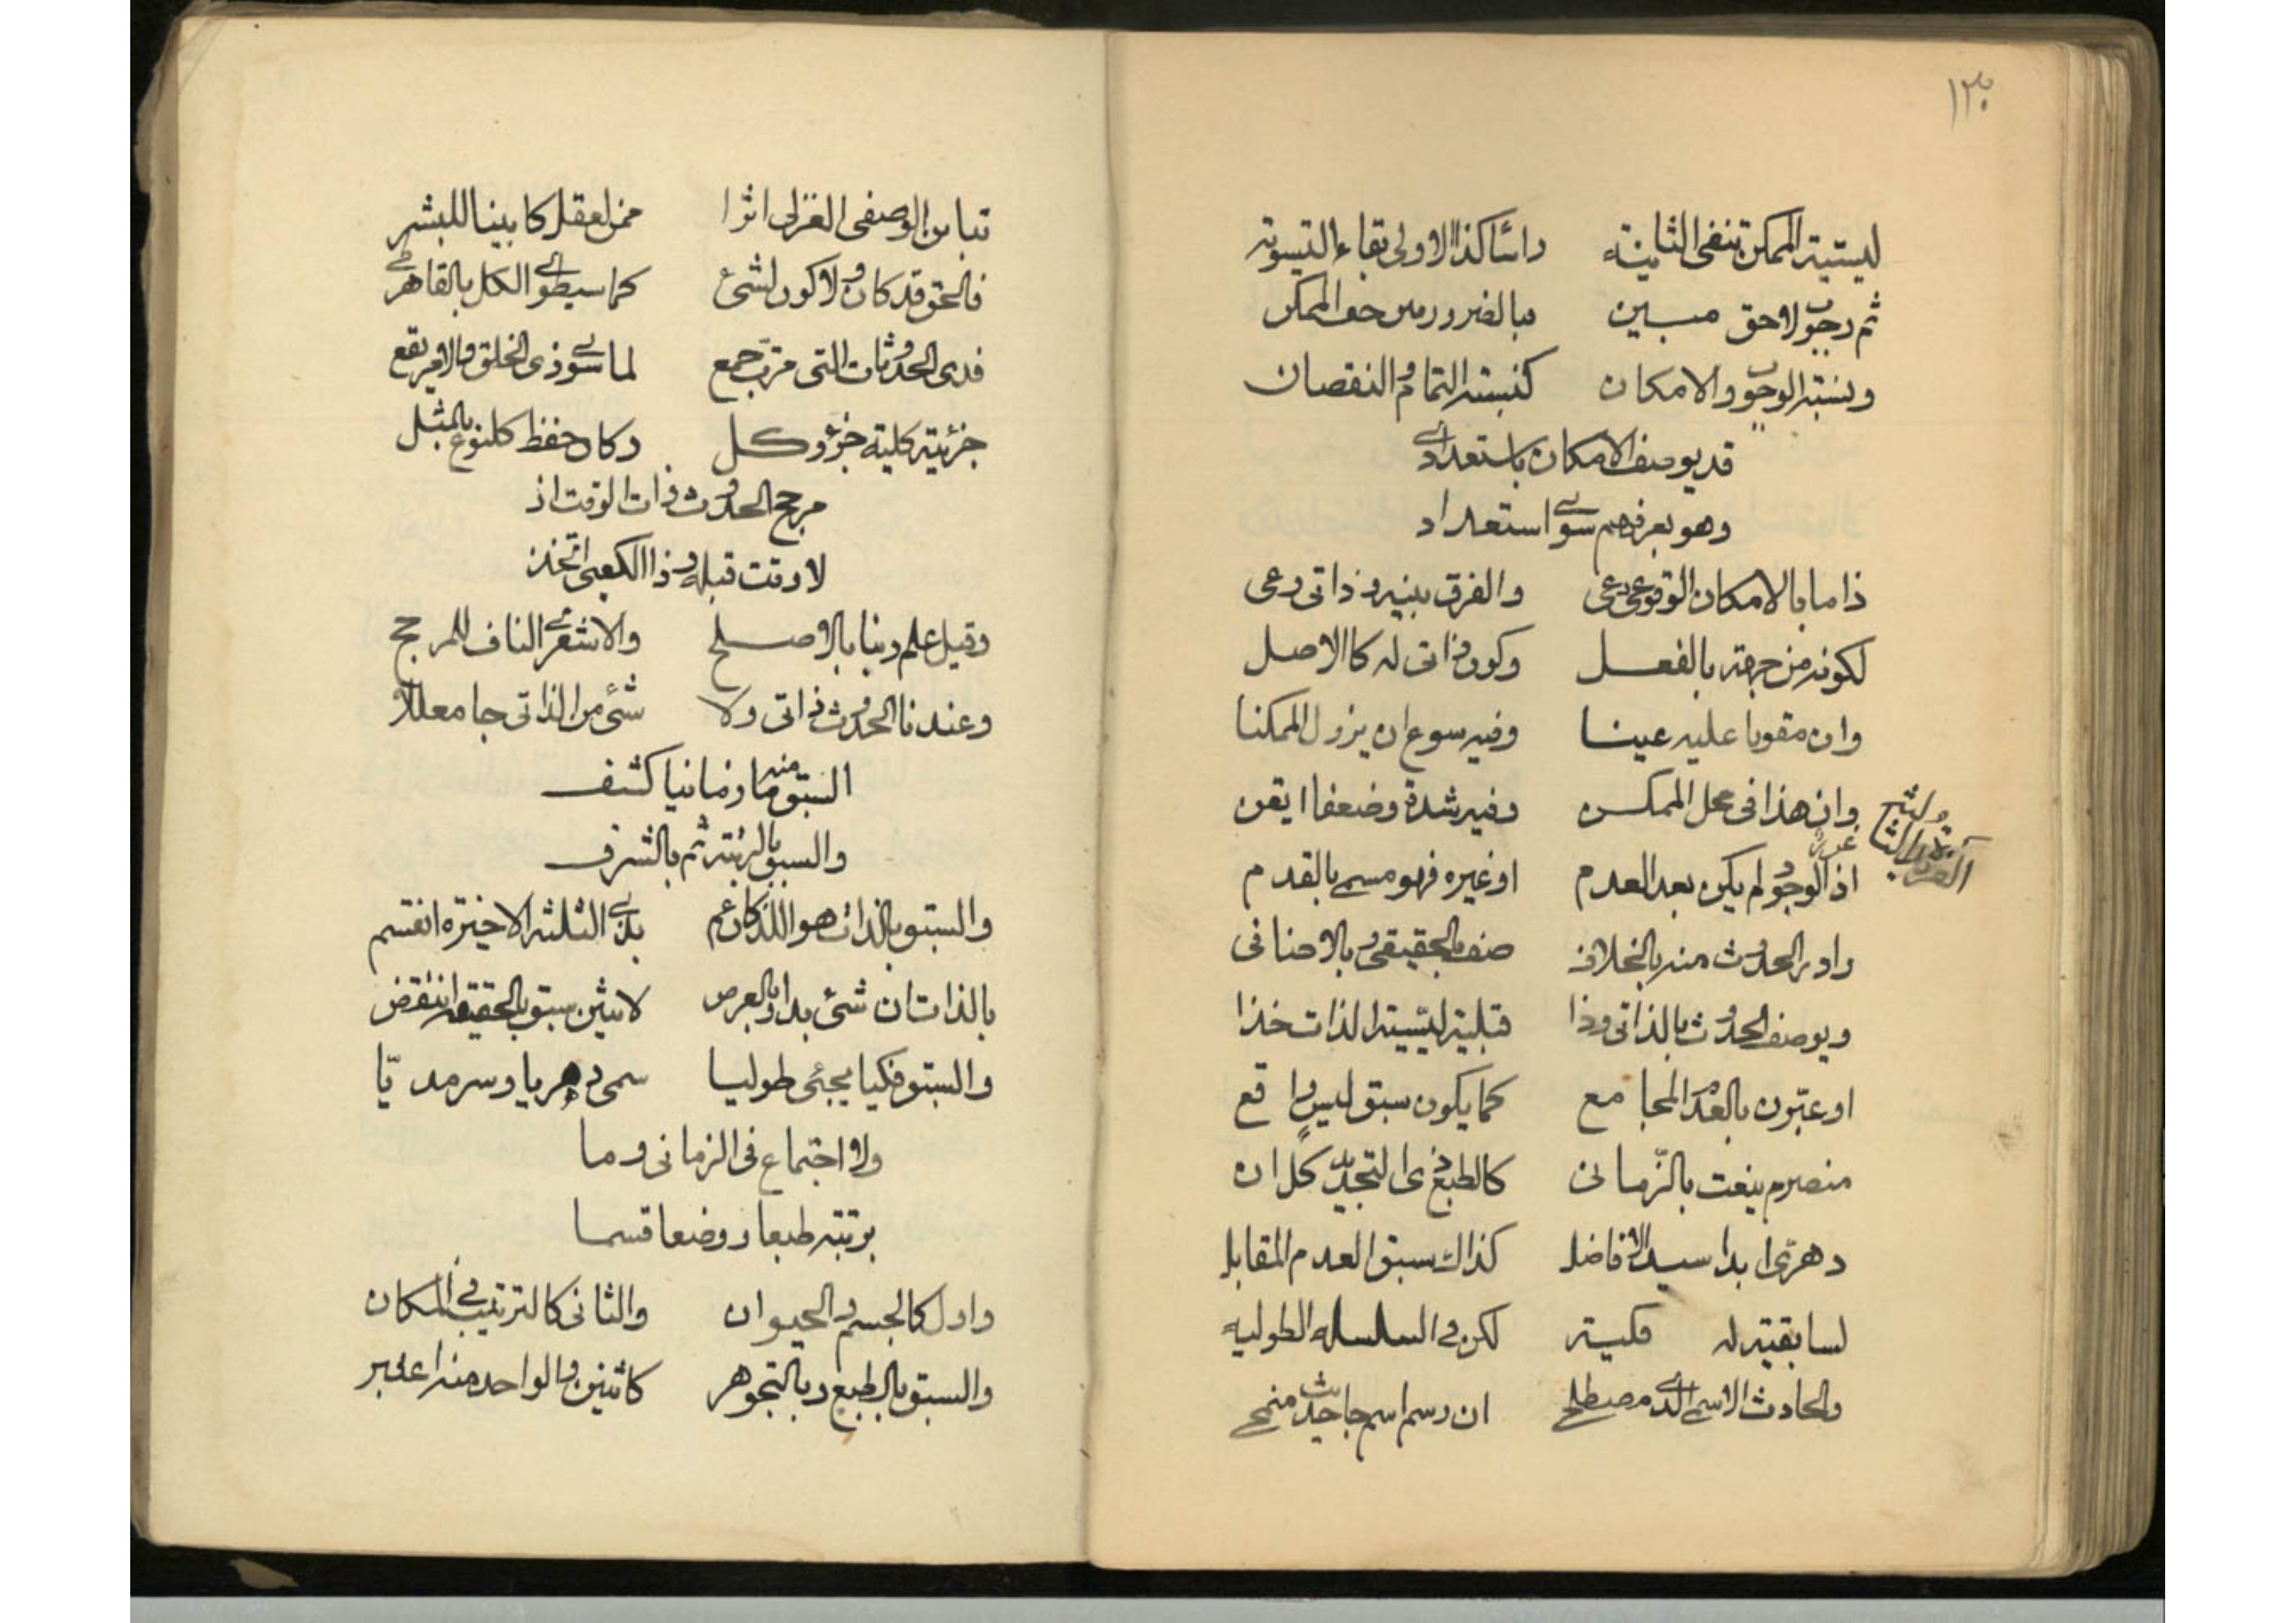 ١٣٠
ليسية الممكن تنفى الثانية راسا كذا الاولى بقاء التسوية
ثم وجوب لاحق مبين فبالضرورتين حف الممكن
ونسبة الوجوب والامكان كنسبة التمام والنقصان
قد يوصف الامكان باستعدادى
وهو بعرفهم سوى استعداد
ذا ما بالامكان الوقوعى دعى والفرق بينه وذاتى رعى
لكونه من جهة بالفعل وكون ذاتى له كالاصل
وان مقويا عليه عينا وفيه سوغ ان يزول الممكنا
وان هذا فى محل الممكن وفيه شدة وضعفا ايقن
اذ الوجود لم يكن بعد العدم او غيره فهو مسمى بالقدم
وادر الحدوث منه بالخلاف صف بالحقيقى وبالاضافى
ويوصف الحدوث بالذاتى وذا قبلية ليسية الذات خذا
او عبرن بالعدم المجامع كما يكون سبق ليس واقع
منصرم ينعت بالزمانى كالطبع ذى التجدد كل ان
دهرى ابدا سيد الافاضل كذاك سبق العدم المقابل
لسابقية له فكية لكن فى السلسله الطوليه
والحادث الاسمى الذى مصطلحى ان رسم اسم جا حديث منمحى
تباين الوصفى لا العزلى اثرا ممن لعقل كابينا للبشر
فالحق قد كان ولا كون لشئ كما سيطوى الكل بالقاهر طى
فذى الحدوثات التى مرت جمع لما سوى ذى الخلق والامر يقع
جزئية كلية جزؤ وكل وكان حفظ كل نوع بالمثل
مرجح الحدوث ذات الوقت اذ
لا وقت قبله وذا الكعبى اتخذ
وقيل علم ربنا بالاصلح والاشعرى الناف للمرجح
وعندنا الحدوث ذاتى ولا شئ من الذاتى جا معللا
السبق منه ما زمانيا كشف
والسبق بالرتبة ثم بالشرف
والسبق بالذات هو اللذ كان عم بذى الثلثة الاخيرة انقسم
بالذات ان شئ بدا وبالعرض لاثنين سبق بالحقيقة انتقض
والسبق فكيا يجئ طوليا سمى دهريا وسرمديّا
ولا اجتماع فى الزمانى وما
برتبة طبعا ووضعا قسما
واول كالجسم والحيوان والثانى كالترتيب فى المكان
والسبق بالطبع وبالتجوهر كاثنين والواحد منه اعتبر